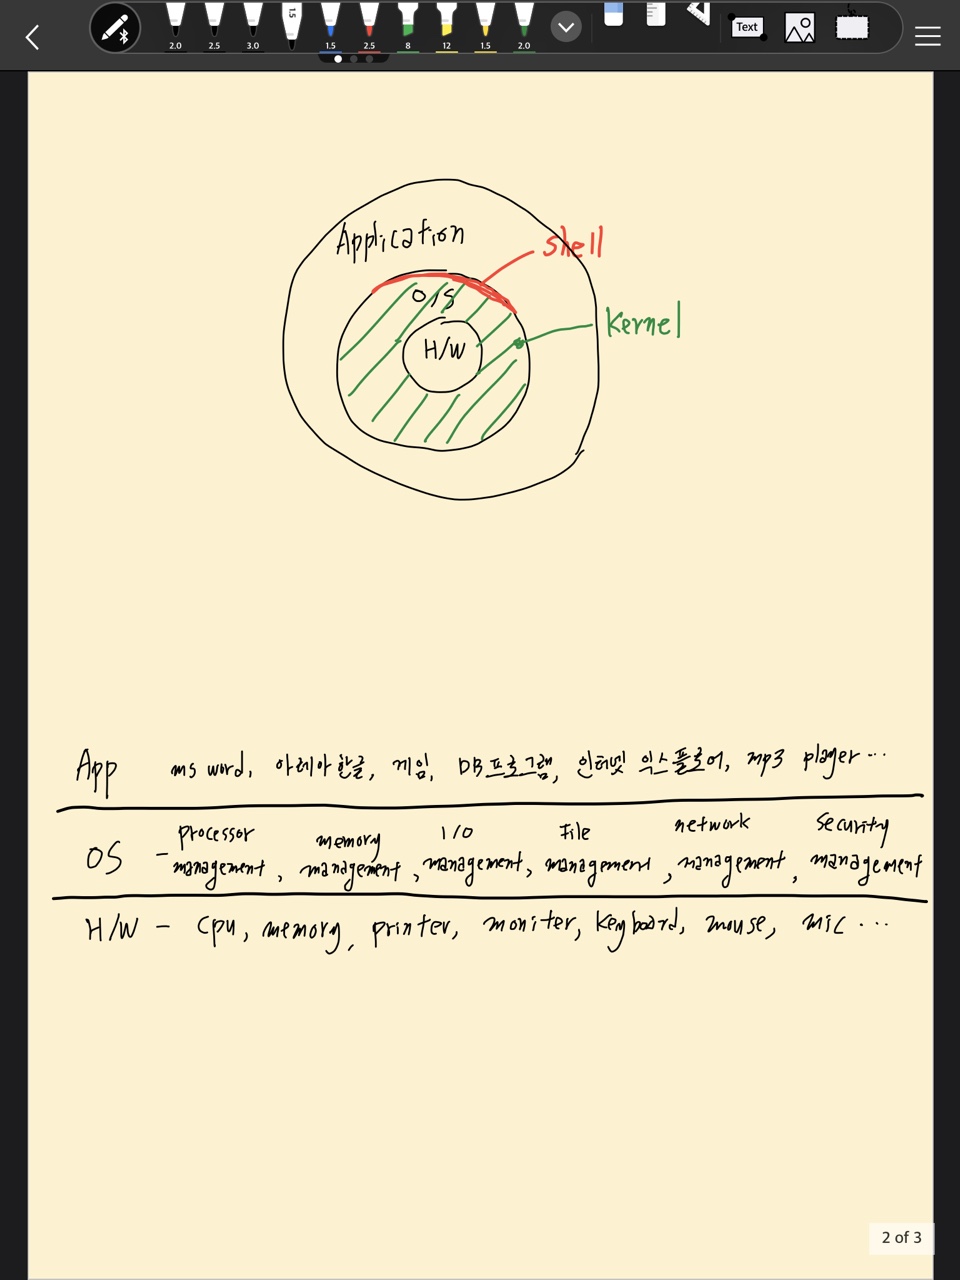 2.0 2.5 3.0 1.5 1.5 2.5 8 12 1.5 2.0 Text
Application
shell
O/S
Kernel
H/W
App ms word, 아레아한글, 게임, DB프로그램, 인터넷 익스플로어, mp3 player ...
OS - processor management, memory management, I/O management, File management, network management, security management
H/W - cpu, memory, printer, moniter, keyboard, mouse, mic ...
2 of 3